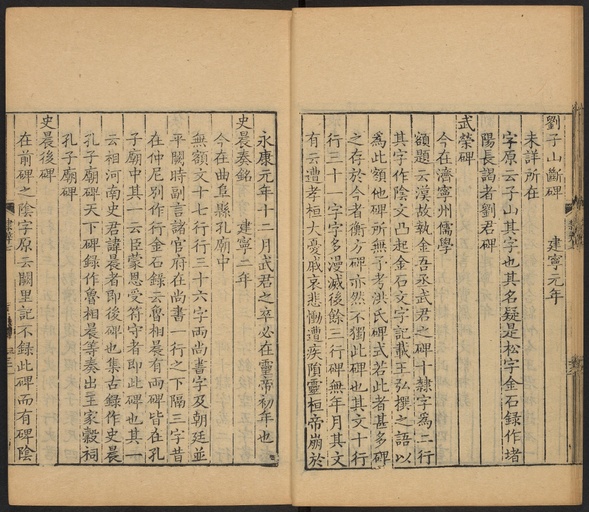 劉子山斷碑 建寧元年
未詳所在
字原云子山其字也其名疑是松字金石錄作堵
陽長謁者劉君碑
武榮碑
今在濟寧州儒學
額題云漢故執金吾丞武君之碑十隸字為二行
其字作陰文凸起金石文字記載王弘撰之語以
為此額他碑所無予考洪氏碑式若此者甚多碑
之存於今者衡方碑亦然不獨此碑也其文十行
行三十一字字多漫滅後餘三行碑無年月其文
有云遭孝桓大憂慼哀悲慟遭疾隕靈桓帝崩於
永康元年十二月武君之卒必在靈帝初年也
史晨奏銘 建寧二年
今在曲阜縣孔廟中
無額文十七行行三十六字兩尚書字及朝廷並
平闕時副言諸官府在尚書一行之下隔三字昔
在仲尼別作行金石錄云魯相晨有兩碑皆在孔
子廟中其一云臣蒙恩受符守者即此碑也其一
云相河南史君諱晨者即後碑也集古錄作史晨
孔子廟碑天下碑錄作魯相晨等奏出王家穀祠
孔子廟碑
史晨後碑
在前碑之陰字原云闕里記不錄此碑而有碑陰